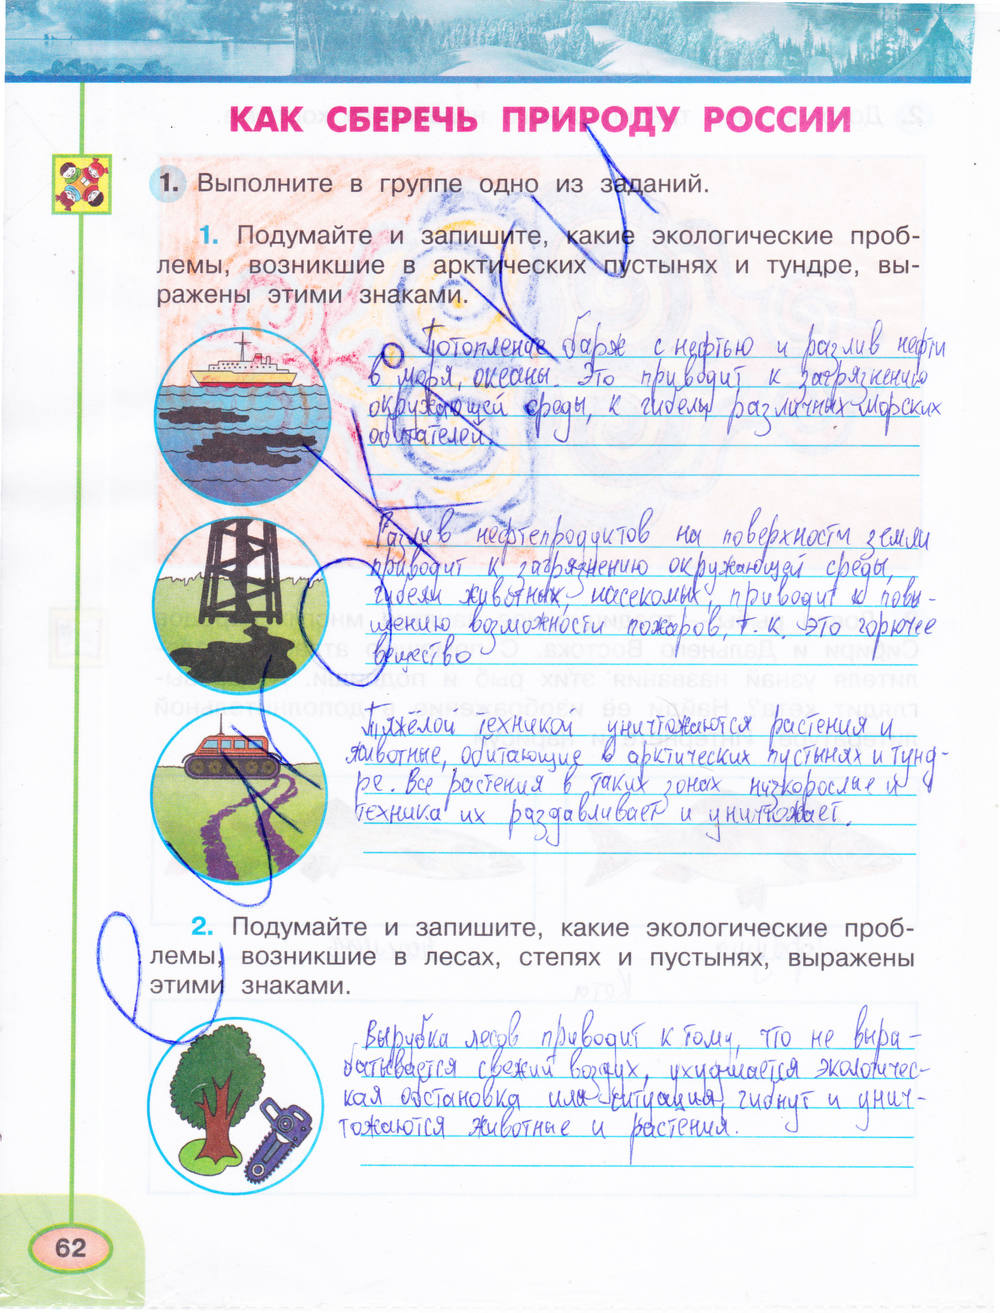 КАК СБЕРЕЧЬ ПРИРОДУ РОССИИ
1. Выполните в группе одно из заданий.
1. Подумайте и запишите, какие экологические проб-
лемы, возникшие в арктических пустынях и тундре, вы-
ражены этими знаками.
Потопление барж с нефтью и разлив нефти
в моря, океаны. Это приводит к загрязнению
окружающей среды, к гибели различных морских
обитателей.
Разлив нефтепродуктов на поверхности земли
приводит к загрязнению окружающей среды,
гибели животных, насекомых, приводит к повы-
шению возможности пожаров, т. к. это горючее
вещество
Тяжёлой техникой уничтожаются растения и
животные, обитающие в арктических пустынях и тунд-
ре. Все растения в таких зонах низкорослые и
техника их раздавливает и уничтожает.
2. Подумайте и запишите, какие экологические проб-
лемы, возникшие в лесах, степях и пустынях, выражены
этими знаками.
Вырубка лесов приводит к тому, что не выра-
батывается свежий воздух, ухудшается экологичес-
кая обстановка или ситуация, гибнут и унич-
тожаются животные и растения.
62